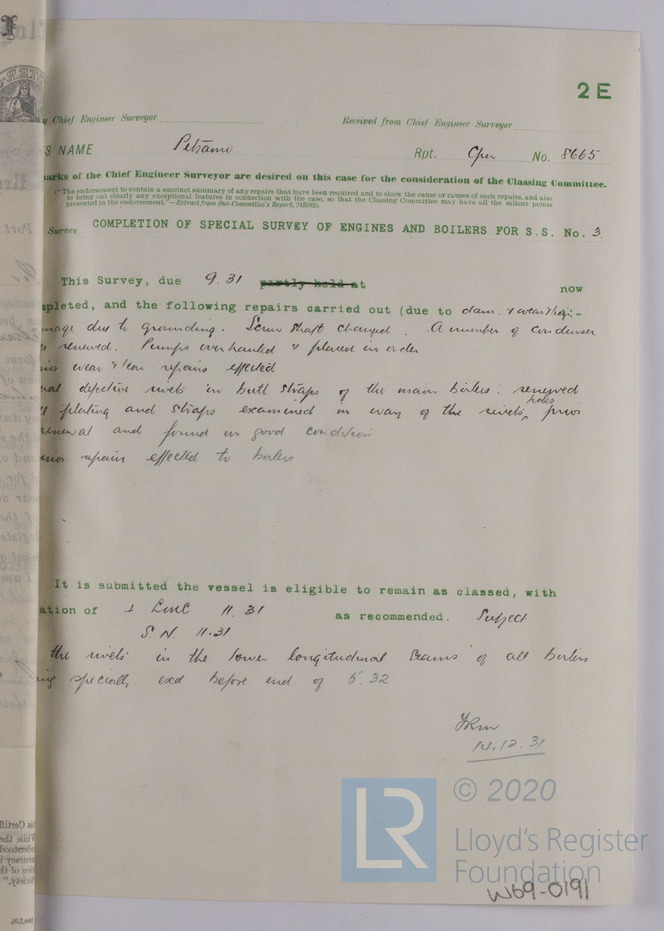 2E
y Chief Engineer Surveyor
Received from Chief Engineer Surveyor
S NAME Petsamo Rpt. Cpn No. 8665
arks of the Chief Engineer Surveyor are desired on this case for the consideration of the Classing Committee.
("The endorsement to contain a succinct summary of any repairs that have been required and to show the cause or causes of such repairs, and also
to bring out clearly any exceptional features in connection with the case, so that the Classing Committee may have all the salient points
presented in the endorsement."—Extract from Sub-Committee's Report, 24/5/92).
Survey COMPLETION OF SPECIAL SURVEY OF ENGINES AND BOILERS FOR S.S. No. 3
This Survey, due 9.31 partly held at now
pleted, and the following repairs carried out (due to dam. & wear & tear):-
mage due to grounding. Screw shaft changed. A number of condenser
s renewed. Pumps overhauled & placed in order
wear & tear repairs effected
ral defective rivets in butt straps of the main boilers: renewed
ll plating and straps examined in way of the rivets holes prior
renewal and found in good condition
inor repairs effected to boilers
It is submitted the vessel is eligible to remain as classed, with
ation of + LMC 11.31 as recommended. Subject
S N 11.31
the rivets in the lower longitudinal seams of all boilers
ing specially exd before end of 5.32
14.12.31
LR
© 2020
Lloyd's Register
Foundation
W69-0191